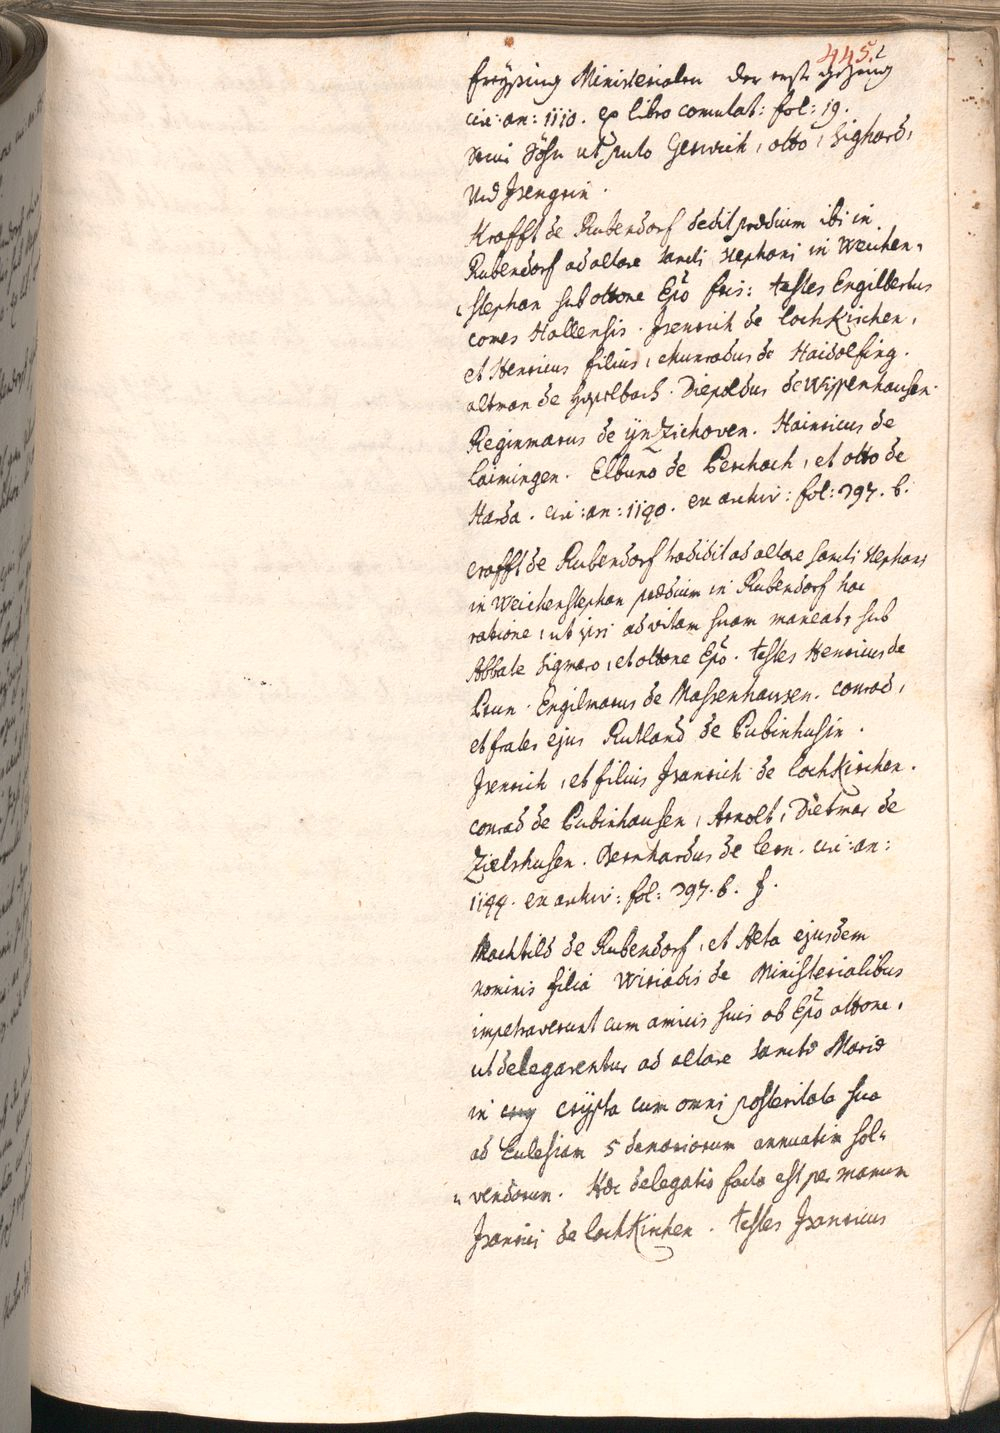 445.
freysing Ministerialen der erste gezeug
circ: an: 1110. ex libro comutat: fol: 19.
seine Söhn ut puto Gerwich, otto, Sighard,
Und Isengrin.
Krafft de Rubendorf dedit prædium ibi in
Rubendorf ad altare sancti stephani in Weichen,
stephan sub ottone Epõ fris: testes Engilbertus
comes Hallensis. Isenrich de Lochkirchen,
et Henricus filius, chunradus de Haidolfing.
altman de Diepoldus de Wippenhausen.
Reginmarus de ijnzichoven. Hainricus de
Laimingen. Elbuno de Perchach, et otto de
Harda. circ: an: 1190. ex archiv: fol: 797. b.
crafft de Rubendorf tradidit ad altare sancti stephani
in Weichenstephan prædium in Rubendorf hac
ratione, ut sibi ad vitam suam maneat, sub
Abbate Sigmaro, et ottone Epõ. testes Henricus de
Prun. Engilmarus de Massenhausen. conrad,
et frater ejus Rutland de Pubinhusin.
Isenrich, et filius Isanrich de Lochkirchen.
conrad de Pubinhausen, Arnolt, Dietmar de
Zielshusen. Bernhardus de Cern. circ: an:
1144. ex archiv: fol: 797. b. f.
Machtild de Rubendorf, et Aeta ejusdem
nominis filia Wiriadis de Ministerialibus
impetraverunt cum amicis suis ab Epõ ottone,
ut delegarentur ad altare sanctæ Mariæ
in cripta cum omni posteritate sua
ad Eulesiam 5 denariorum annuatim sol,
vendorum. Hæc delegatio facta est per manum
Isanrici de Lochkirchen. testes Isanricus